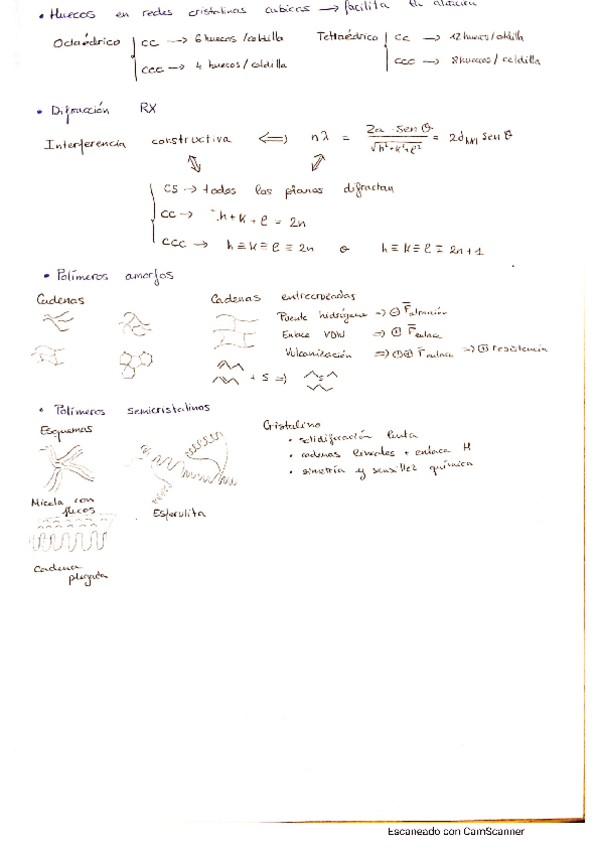 • Huecos en redes cristalinas cúbicas → facilita la aleación
Octaédrico { CC → 6 huecos/celdilla    Tetraédrico | CC → 12 huecos/celdilla
CCC → 4 huecos/celdilla    CCC → 8 huecos/celdilla
• Difracción RX
Interferencia constructiva ⟺ nλ = 2a · sen θ / √h²+k²+l² = 2dhkl sen θ
CS → todos los planos difractan
CC → h+k+l = 2n
CCC → h≡k≡l≡2n o h≡k≡l≡2n+1
• Polímeros amorfos
Cadenas    Cadenas entrecruzadas
Puente hidrógeno ⇒ ⊖ F atracción
Enlace VDW ⇒ ⊕ F enlace
Vulcanización ⇒ ⊕⊕ F enlace ⇒ ⊕ resistencia
+ S ⇒ S
• Polímeros semicristalinos
Esquemas    Cristalino
• solidificación lenta
• cadenas lineales + enlace H
• simetría y sensillez química
Micela con flecos
Esferulita
Cadena plegada
Escaneado con CamScanner